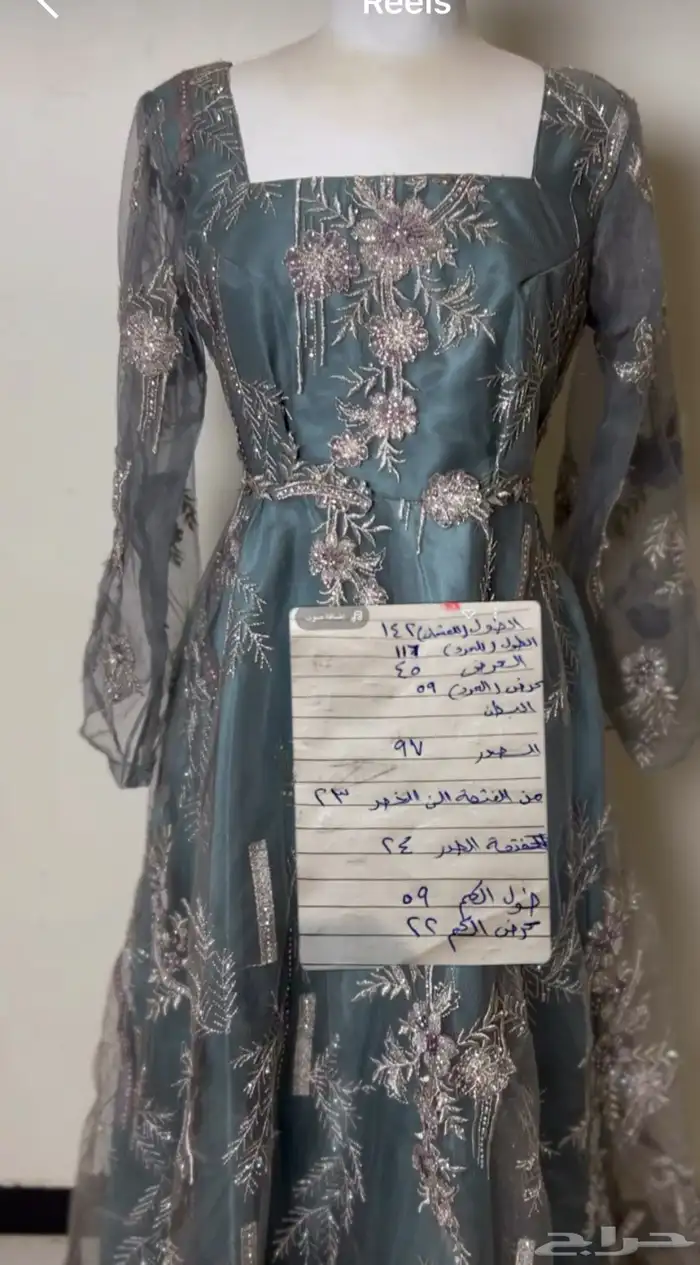 Reels
إضافة صوت
الطول (للمشد) ١٤٢
الطول (المرد) ١١٦
العرض ٤٥
عرض (المرد) ٥٩
البطن
الصدر ٩٧
من الفتحة الى الخصر ٢٣
فتحة الصدر ٢٤
طول الكم ٥٩
عرض الكم ٢٢
حراج